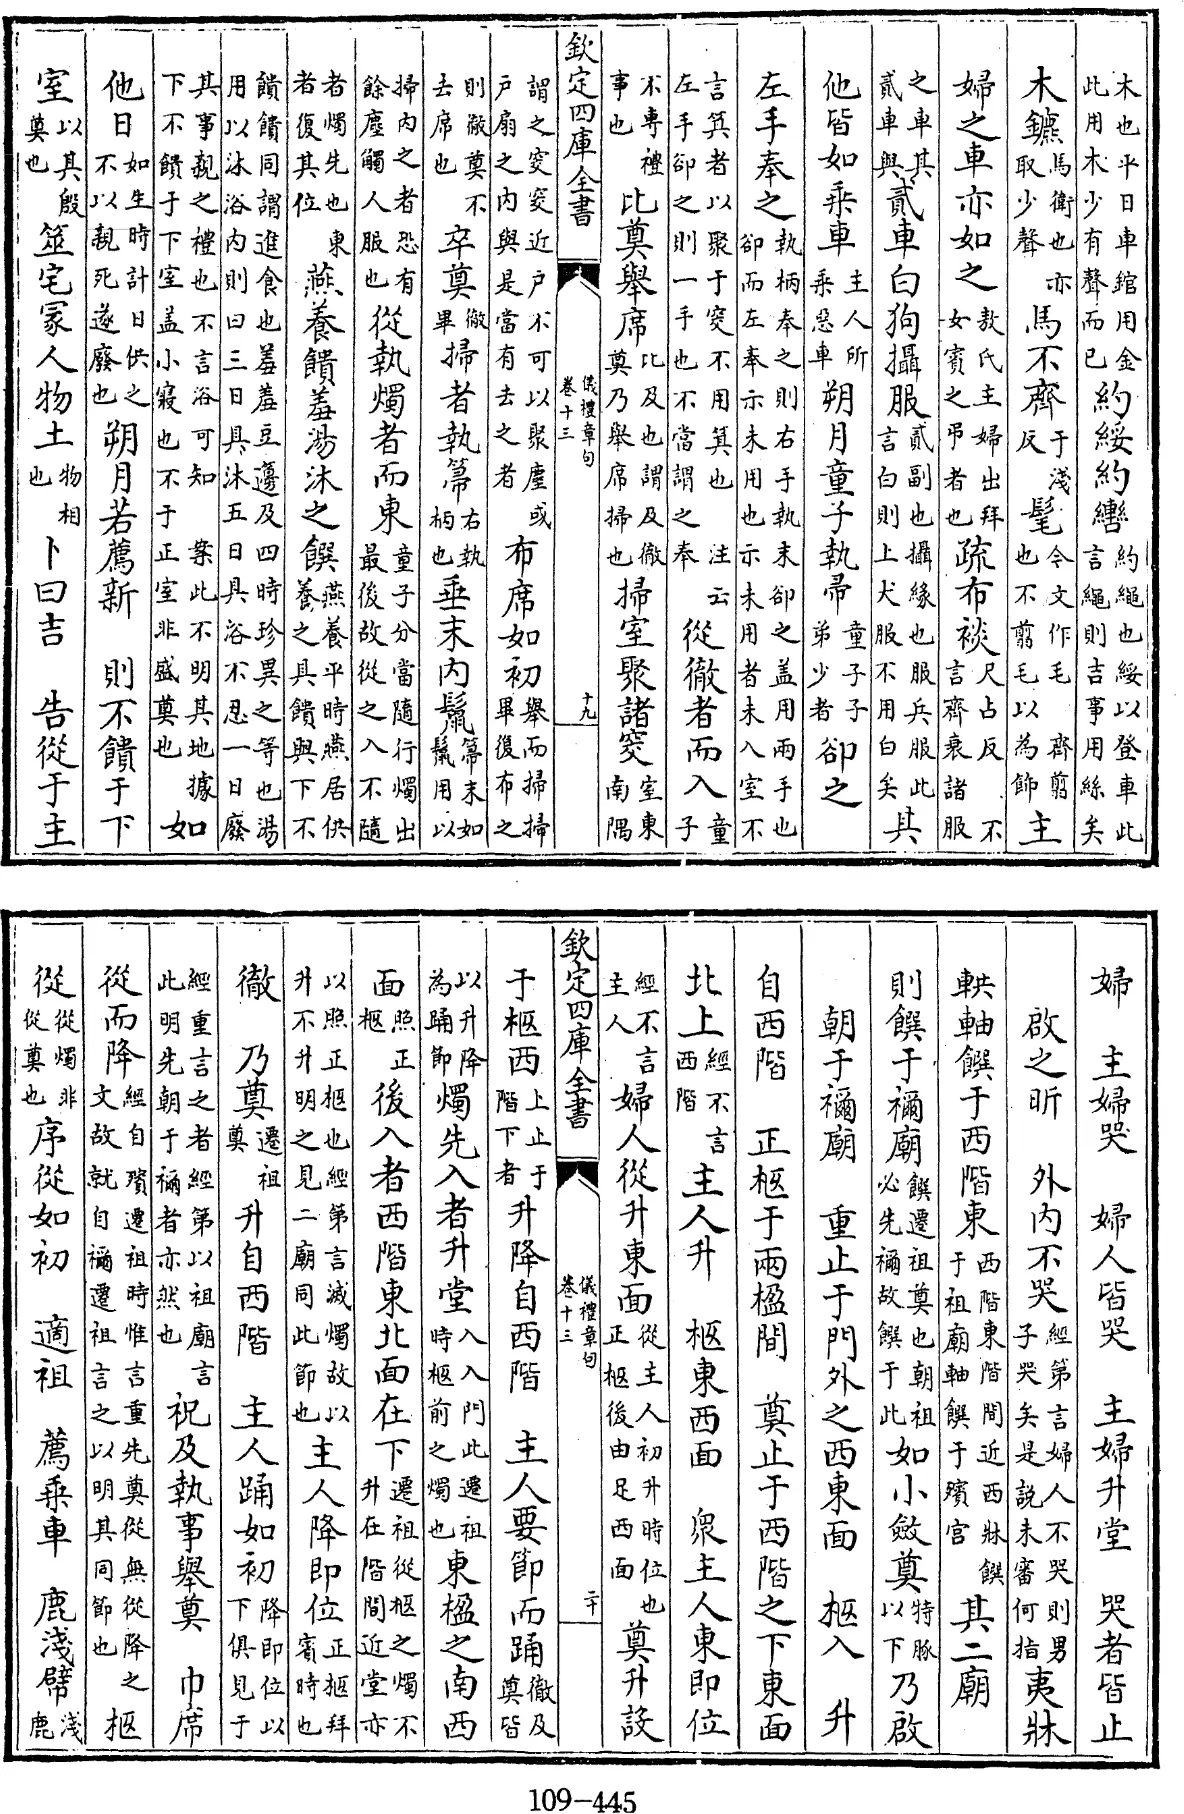 木也平日車錧用金此用木少有聲而已約綏約轡約繩也綏以登車此言繩則吉事用絲矣
木鑣馬衛也亦取少聲馬不齊于淺反髦今文作毛 齊剪也不剪毛以為飾主
婦之車亦如之敖氏主婦出拜女賓之弔者也疏布裧尺占反 不言齊衰諸服
之車其貳車與貳車白狗攝服貳副也攝緣也服兵服此言白則上犬服不用白矣其
他皆如乘車主人所乘惡車朔月童子執帚童子子弟少者卻之
左手奉之執柄奉之則右手執末卻之蓋用兩手也卻而左奉示未用也示未用者未入室不
言箕者以聚于窔不用箕也 注云左手卻之則一手也不當謂之奉從徹者而入童子
不專禮事也比奠舉席比及也謂及徹奠乃舉席掃也掃室聚諸窔室東南隅
欽定四庫全書 儀禮章句 卷十三 十九
謂之窔窔近户不可以聚塵或户扇之內與是當有去之者布席如初舉而掃掃畢復布之
則徹奠不去席也卒奠徹畢掃者執帚右執柄也垂末內鬣帚末如鬣用以
掃內之者恐有餘塵觸人服也從執燭者而東童子分當隨行燭出最後故從之入不隨
者燭先也 東者復其位燕養饋羞湯沐之饌燕養平時燕居供養之具饋與下不
饋饋同謂進食也羞羞豆籩及四時珍異之等也湯用以沐浴內則曰三日具沐五日具浴不忍一日廢
其事親之禮也不言浴可知 案此不明其地據下不饋于下室蓋小寢也不于正室非盛奠也如
他日如生時計日供之不以親死遂廢也朔月若薦新 則不饋于下
室以其殷奠也筮宅冢人物土物相也卜曰吉 告從于主
婦 主婦哭 婦人皆哭 主婦升堂 哭者皆止
啟之昕 外內不哭經第言婦人不哭則男子哭矣是說未審何指夷牀
輁軸饌于西階東西階東階間近西牀饌于祖廟軸饌于殯宮其二廟
則饌于禰廟饌遷祖奠也朝祖必先禰故饌于此如小斂奠特豚以下乃啟
朝于禰廟 重止于門外之西東面 柩入 升
自西階 正柩于兩楹間 奠止于西階之下東面
北上經不言西階主人升 柩東西面 眾主人東即位
經不言主人婦人從升東面從主人初升時位也正柩後由足西面奠升設
欽定四庫全書 儀禮章句 卷十三 二十
于柩西上止于階下者升降自西階 主人要節而踊徹及奠皆
以升降為踊節燭先入者升堂入入門此遷祖時柩前之燭也東楹之南西
面照正柩後入者西階東北面在下遷祖從柩之燭不升在階間近堂亦
以照正柩也經第言滅燭故以升不升明之見二廟同此節也主人降即位正柩拜賓時也
徹 乃奠遷祖奠升自西階 主人踊如初降即位以下俱見于
經重言之者經第以祖廟言此明先朝于禰者亦然也祝及執事舉奠 巾席
從而降經自殯遷祖時惟言重先奠從無從降之文故就自禰遷祖言之以明其同節也柩
從從燭非從奠也序從如初 適祖 薦乘車 鹿淺幦淺鹿
109-445